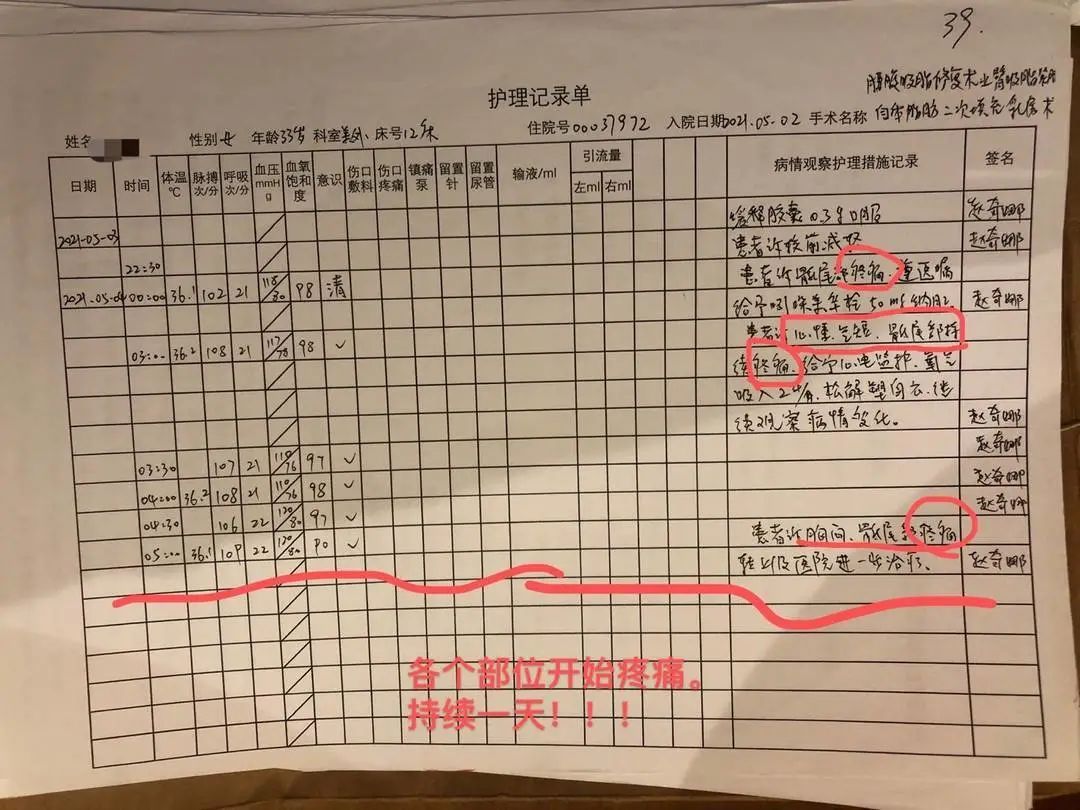 39.
腰腹吸脂修复术上臂吸脂
护理记录单
自体脂肪二次填充乳房术
姓名 性别女 年龄33岁 科室美外 床号12床 住院号00037972 入院日期2021.05-02 手术名称
日期 时间 体温℃ 脉搏次/分 呼吸次/分 血压mmHg 血氧饱和度 意识 伤口敷料 伤口疼痛 镇痛泵 留置针 留置尿管 输液/ml 引流量 左ml 右ml 病情观察护理措施记录 签名
缓释胶囊0.3g口服 赵奇娜
2021-05-03 患者诉较前减轻 赵奇娜
22:30 患者诉骶尾部疼痛.遵医嘱
2021.05-04 00:00 36.1 102 21 118/80 98 清 给予吲哚美辛栓50mg纳肛. 赵奇娜
患者诉心慌.气短.骶尾部持
03:00 36.2 108 21 117/78 98 ✓ 续疼痛.给予心电监护.氧气
吸入2L/分.松解塑身衣.继
续观察病情变化。 赵奇娜
赵奇娜
03:30 107 21 110/76 97 ✓ 赵奇娜
04:00 36.2 108 21 110/76 98 ✓ 赵奇娜
04:30 106 22 120/80 97 ✓ 患者诉胸闷、骶尾部疼痛
05:00 36.1 109 22 120/80 90 ✓ 转上级医院进一步治疗. 赵奇娜
各个部位开始疼痛。
持续一天！！！